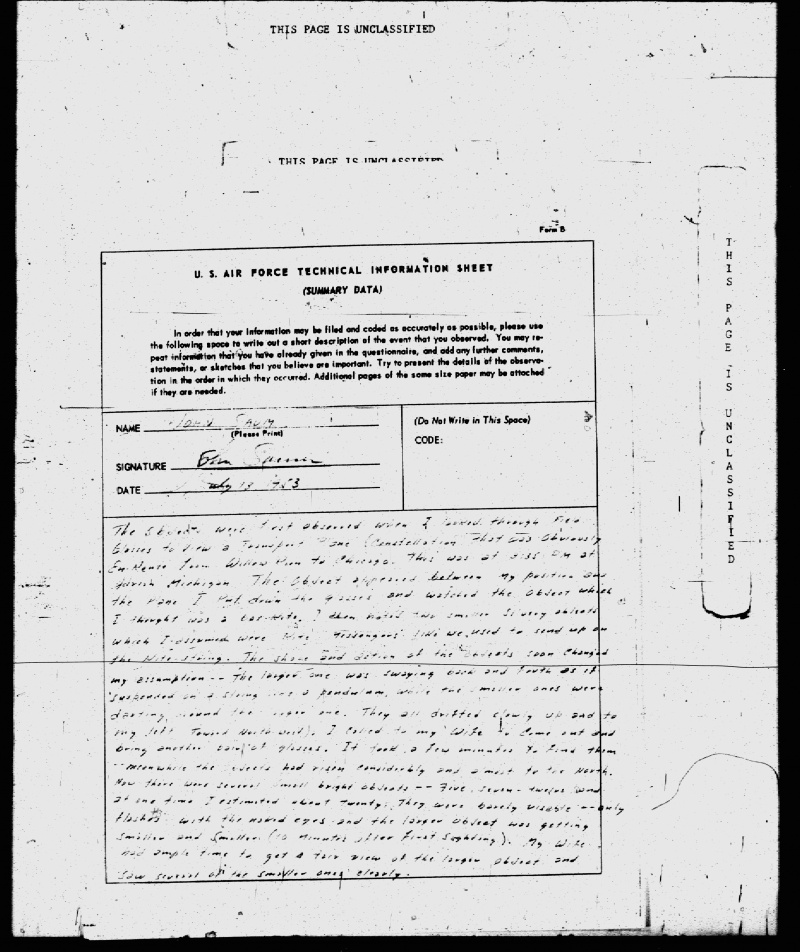 THIS PAGE IS UNCLASSIFIED
THIS PAGE IS UNCLASSIFIED
Form B
U. S. AIR FORCE TECHNICAL INFORMATION SHEET
(SUMMARY DATA)
In order that your information may be filed and coded as accurately as possible, please use
the following space to write out a short description of the event that you observed. You may re-
peat information that you have already given in the questionnaire, and add any further comments,
statements, or sketches that you believe are important. Try to present the details of the observa-
tion in the order in which they occurred. Additional pages of the same size paper may be attached
if they are needed.
NAME John
(Please Print)
SIGNATURE
DATE July 13 1953
(Do Not Write in This Space)
CODE:
The Objects were first observed when I looked through Field
Glasses to view a Transport Plane (Constellation that was Obviously
En-Route from Willow Run to Chicago. This was at PM at
Michigan The Object appeared between my position and
the Plane I Put down the glasses and watched the Object which
I thought was a box-Kite. I then noted two smaller silvery objects
which I assumed were Kite "Messengers" like we used to send up on
the Kite-string. The shape and action of the objects soon changed
my assumption -- The larger one was swaying back and fourth as if
suspended on a string like a pendulum, while the smaller ones were
darting around the larger one. They all drifted slowly up and to
my left (Toward North-west). I called to my Wife to come out and
bring another pair of glasses. It took a few minutes to find them
-- meanwhile the objects had risen considerably and almost to the North.
Now there were several small bright objects -- Five, seven - twelve and
at one time I estimated about twenty. They were barely visable -- only
flashes with the naked eyes and the larger object was getting
smaller and smaller (10 minutes after First Sighting). My Wife
had ample time to get a fair view of the larger object and
saw several of the smaller ones clearly.
THIS PAGE IS UNCLASSIFIED